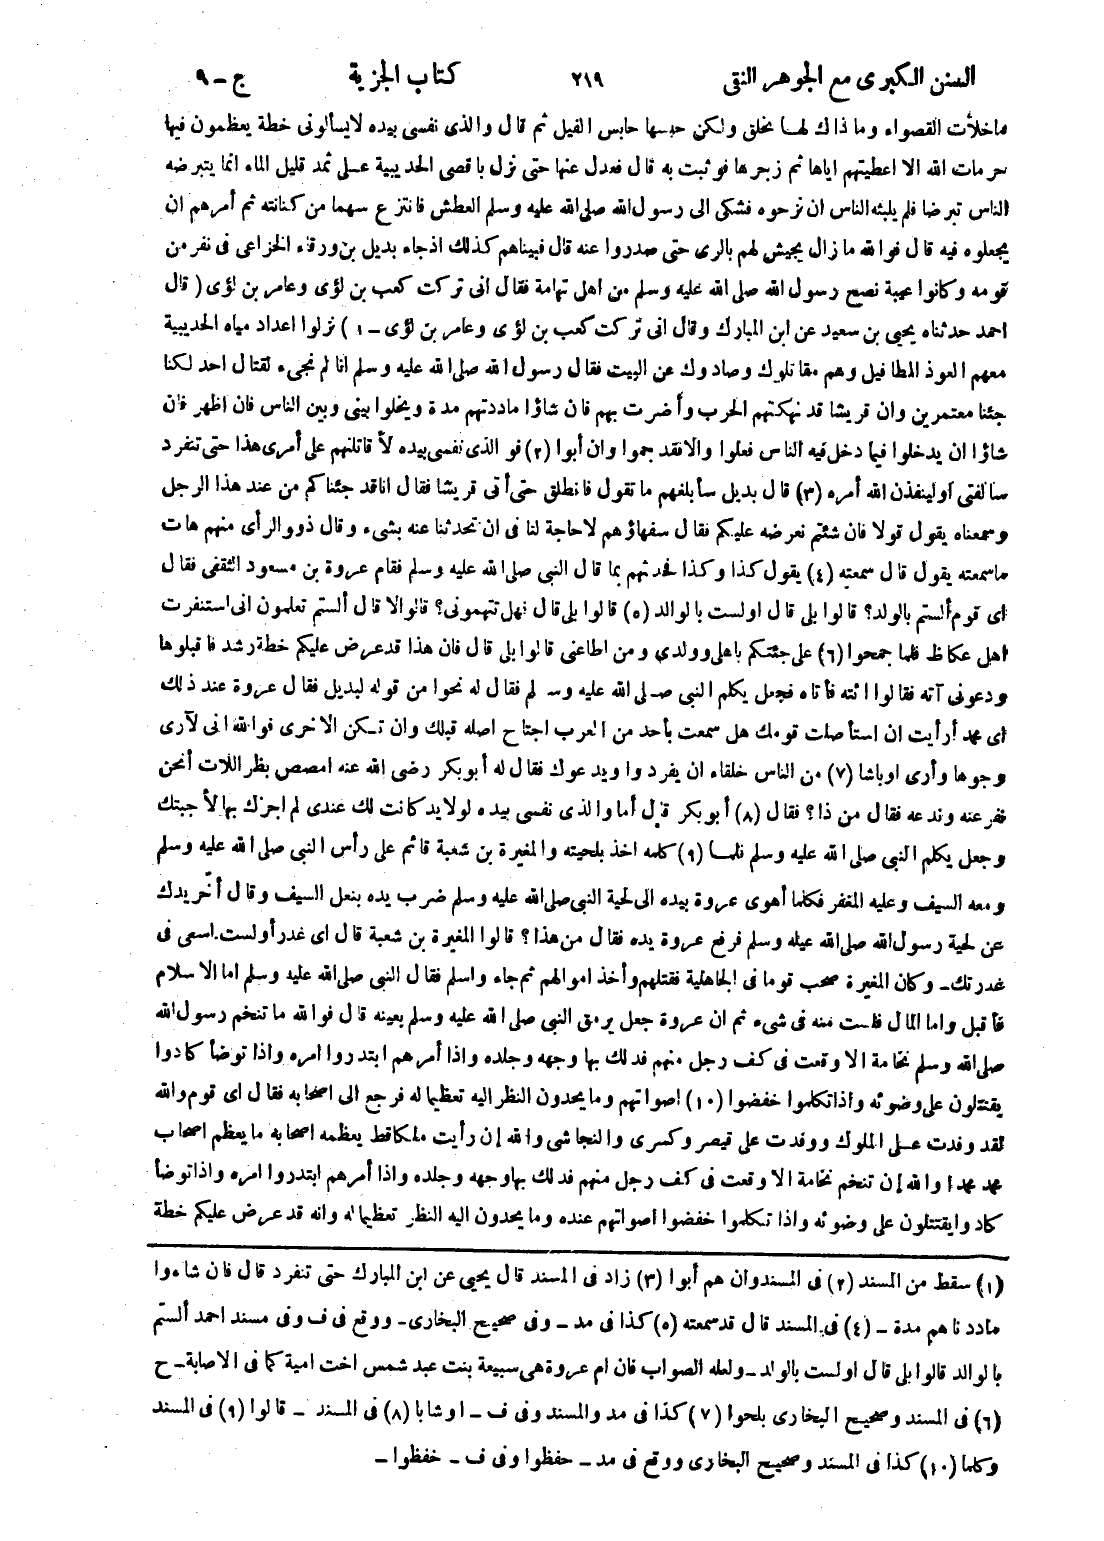 السنن الكبرى مع الجوهر النقى ٢١٩ كتاب الجزية ج - ٩
ماخلأت القصواء وما ذاك لها بخلق ولكن حبسها حابس الفيل ثم قال والذى نفسى بيده لايسألونى خطة يعظمون فيها
حرمات الله الا اعطيتهم اياها ثم زجرها فوثبت به قال فعدل عنها حتى نزل باقصى الحديبية عـلى ثمد قليل الماء انما يتبرضه
الناس تبرضا فلم يلبثه الناس ان نزحوه فشكى الى رسول الله صلى الله عليه وسلم العطش فانتزع سهما من كنانته ثم أمرهم ان
يجعلوه فيه قال فوالله ما زال يجيش لهم بالرى حتى صدروا عنه قال فبيناهم كذلك اذجاء بديل بن ورقاء الخزاعى فى نفر من
قومه وكانوا عيبة نصح رسول الله صلى الله عليه وسلم من اهل تهامة فقال انى تركت كعب بن لؤى وعامر بن لؤى (قال
احمد حدثناه يحيى بن سعيد عن ابن المبارك وقال انى تركت كعب بن لؤى وعامر بن لؤى - ١) نزلوا اعداد مياه الحديبية
معهم العوذ المطافيل وهم مقاتلوك وصادوك عن البيت فقال رسول الله صلى الله عليه وسلم انا لم نجىء لقتال احد لكنا
جئنا معتمرين وان قريشا قد نهكتهم الحرب وأضرت بهم فان شاؤا ماددتهم مدة ويخلوا بينى وبين الناس فان اظهر فان
شاؤا ان يدخلوا فيما دخل فيه الناس فعلوا والافقد جموا وان أبوا (٢) فو الذى نفسى بيده لأقاتلنهم على أمرى هذا حتى تنفرد
سالفتى اولينفذن الله أمره (٣) قال بديل سأبلغهم ماتقول فانطلق حتى أتى قريشا فقال اناقد جئناكم من عند هذا الرجل
وسمعناه يقول قولا فان شئتم نعرضه عليكم فقال سفهاؤهم لاحاجة لنا فى ان تحدثنا عنه بشىء وقال ذووالرأى منهم هات
ماسمعته يقول قال سمعته (٤) يقول كذا وكذا فحدثهم بما قال النبى صلى الله عليه وسلم فقام عروة بن مسعود الثقفى فقال
اى قوم ألستم بالولد؟ قالوا بلى قال اولست بالوالد (٥) قالوا بلى قال فهل تتهمونى؟ قالوالا قال ألستم تعلمون انى استنفرت
اهل عكاظ فلما جمحوا (٦) على جئتكم باهلى وولدى ومن اطاعنى قالوا بلى قال فان هذا قدعرض عليكم خطة رشد فاقبلوها
ودعونى آته فقالوا ائته فأتاه فجعل يكلم النبى صلى الله عليه وسلم فقال له نحوا من قوله لبديل فقال عروة عند ذلك
اى محمد أرأيت ان استأصلت قومك هل سمعت بأحد من العرب اجتاح اصله قبلك وان تكن الاخرى فوالله انى لآرى
وجوها وأرى اوباشا (٧) من الناس خلقاء ان يفردوا ويدعوك فقال له أبوبكر رضى الله عنه امصص بظر اللات أنحن
نفر عنه وندعه فقال من ذا؟ فقال (٨) أبوبكر قال أما والذى نفسى بيده لولايد كانت لك عندى لم اجزك بها لأجبتك
وجعل يكلم النبى صلى الله عليه وسلم فلما (٩) كلمه اخذ بلحيته والمغيرة بن شعبة قائم على رأس النبى صلى الله عليه وسلم
ومعه السيف وعليه المغفر فكلما أهوى عروة بيده الى لحية النبى صلى الله عليه وسلم ضرب يده بنعل السيف وقال أخّر يدك
عن لحية رسول الله صلى الله عيله وسلم فرفع عروة يده فقال من هذا؟ قالوا المغيرة بن شعبة قال اى غدر أولست اسعى فى
غدرتك - وكان المغيرة صحب قوما فى الجاهلية فقتلهم وأخذ اموالهم ثم جاء واسلم فقال النبى صلى الله عليه وسلم اما الاسلام
فأقبل واما المال فلست منه فى شىء ثم ان عروة جعل يرمق النبى صلى الله عليه وسلم بعينه قال فوالله ما تنخم رسول الله
صلى الله وسلم نخامة الا وقعت فى كف رجل منهم فدلك بها وجهه وجلده واذا أمرهم ابتدروا امره واذا توضأ كادوا
يقتتلون على وضوئه واذا تكلموا خفضوا (١٠) اصواتهم وما يحدون النظر اليه تعظيما له فرجع الى اصحابه فقال اى قوم والله
لقد وفدت عـلى الملوك ووفدت على قيصر وكسرى والنجاشى والله إن رأيت ملكا قط يعظمه اصحابه ما يعظم اصحاب
محمد محمدا والله إن تنخم نخامة الا وقعت فى كف رجل منهم فدلك بهاوجهه وجلده واذا أمرهم ابتدروا امره واذا توضأ
كادوا يقتتلون على وضوئه واذا تكلموا خفضوا اصواتهم عنده وما يحدون اليه النظر تعظيما له وانه قد عرض عليكم خطة
(١) سقط من المسند (٢) فى المسند وان هم أبوا (٣) زاد فى المسند قال يحيى عن ابن المبارك حتى تنفرد قال فان شاءوا
ماددناهم مدة - (٤) فى المسند قال قد سمعته (٥) كذا فى مد - وفى صحيح البخارى - ووقع فى ف وفى مسند احمد ألستم
بالوالد قالوا بلى قال اولست بالولد - ولعله الصواب فان ام عروة هى سبيعة بنت عبد شمس اخت امية كما فى الاصابة - ح
(٦) فى المسند وصحيح البخارى بلحوا (٧) كذا فى مد والمسند وفى ف - اوشابا (٨) فى المسند - قالوا (٩) فى المسند
وكلما (١٠) كذا فى المسند وصحيح البخارى ووقع فى مد - حفظوا وفى ف - خفظوا -